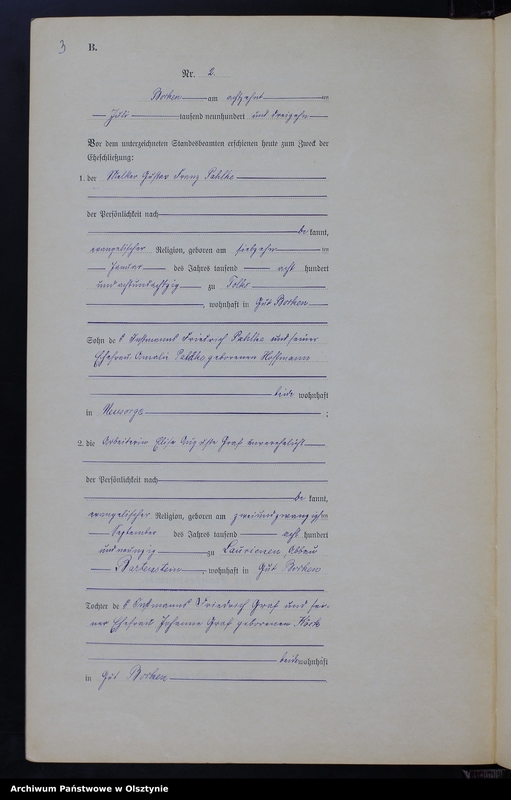 3 B.
Nr. 2.
Borken am achtzehnten
Juli tausend neunhundert und dreizehn
Vor dem unterzeichneten Standesbeamten erschienen heute zum Zweck der
Eheschließung:
1. der Melker Gustav Franz Pahlke
der Persönlichkeit nach
be kannt,
evangelischer Religion, geboren am siebzehnten
Januar des Jahres tausend acht hundert
undachtundachtzig zu Tolks
, wohnhaft in Gut Borken
Sohn des Instmanns Friedrich Pahlke und seiner
Ehefrau Amalie Pahlke geborenen Hoffmann
beide wohnhaft
in Neusorge ;
2. die Arbeiterin Elise Auguste Graf unverehelicht
der Persönlichkeit nach
be kannt,
evangelischer Religion, geboren am zweiundzwanzigsten
September des Jahres tausend acht hundert
undneunzig zu Laurienen, Abbau
Bartenstein, wohnhaft in Gut Borken
Tochter des Instmanns Friedrich Graf und sei-
ner Ehefrau Johanne Graf geborenen
beide wohnhaft
in Gut Borken
Archiwum Państwowe w Olsztynie